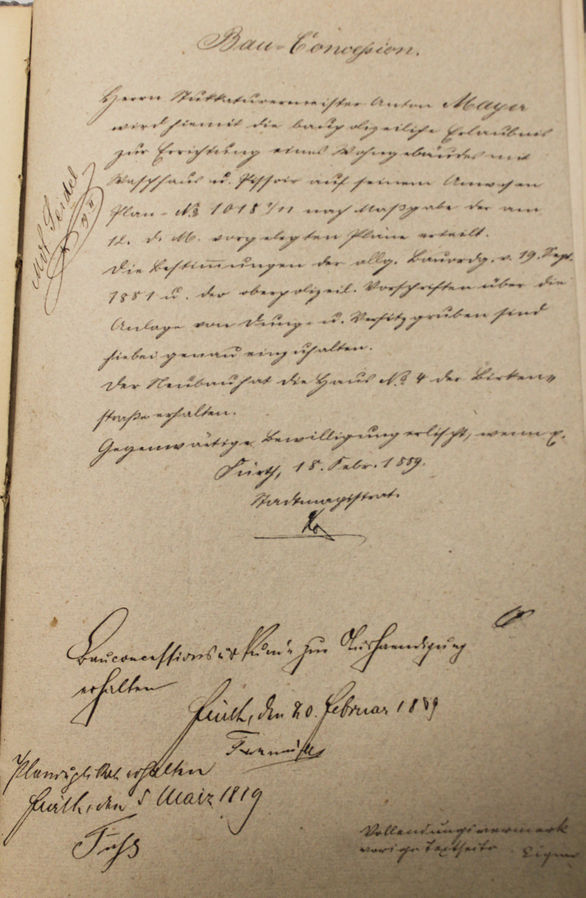 Bau-Concession.
Herrn Stukkaturermeister Anton Mayer
wird hiemit die baupolizeiliche Erlaubnis
zur Errichtung eines Wohngebäudes mit
Waschhaus u. Pissoir auf seinem Anwesen
Plan-No 1018 1/11 nach Maßgabe der am
12. d. M. vorgelegten Pläne erteilt.
Die Bestimmungen der allg. Bauordg. v. 19. Sept.
1881 u. der oberpolizeil. Vorschriften über die
Anlage von Dung- u. Versitzgruben sind
hiebei genau einzuhalten.
Der Neubau hat die Haus No 4 der Birken-
straße erhalten.
Gegenwärtige Bewilligung erlischt, wenn p.
Fürth, 18. Febr. 1889.
Stadtmagistrat.
Seidel
Bauconcessions zur Aushaendigung
erhalten
Fürth, den 20. Februar 1889
Planduplikat erhalten
Fürth, den 5 März 1889
Vollendungsvermerk
vorige Textseite